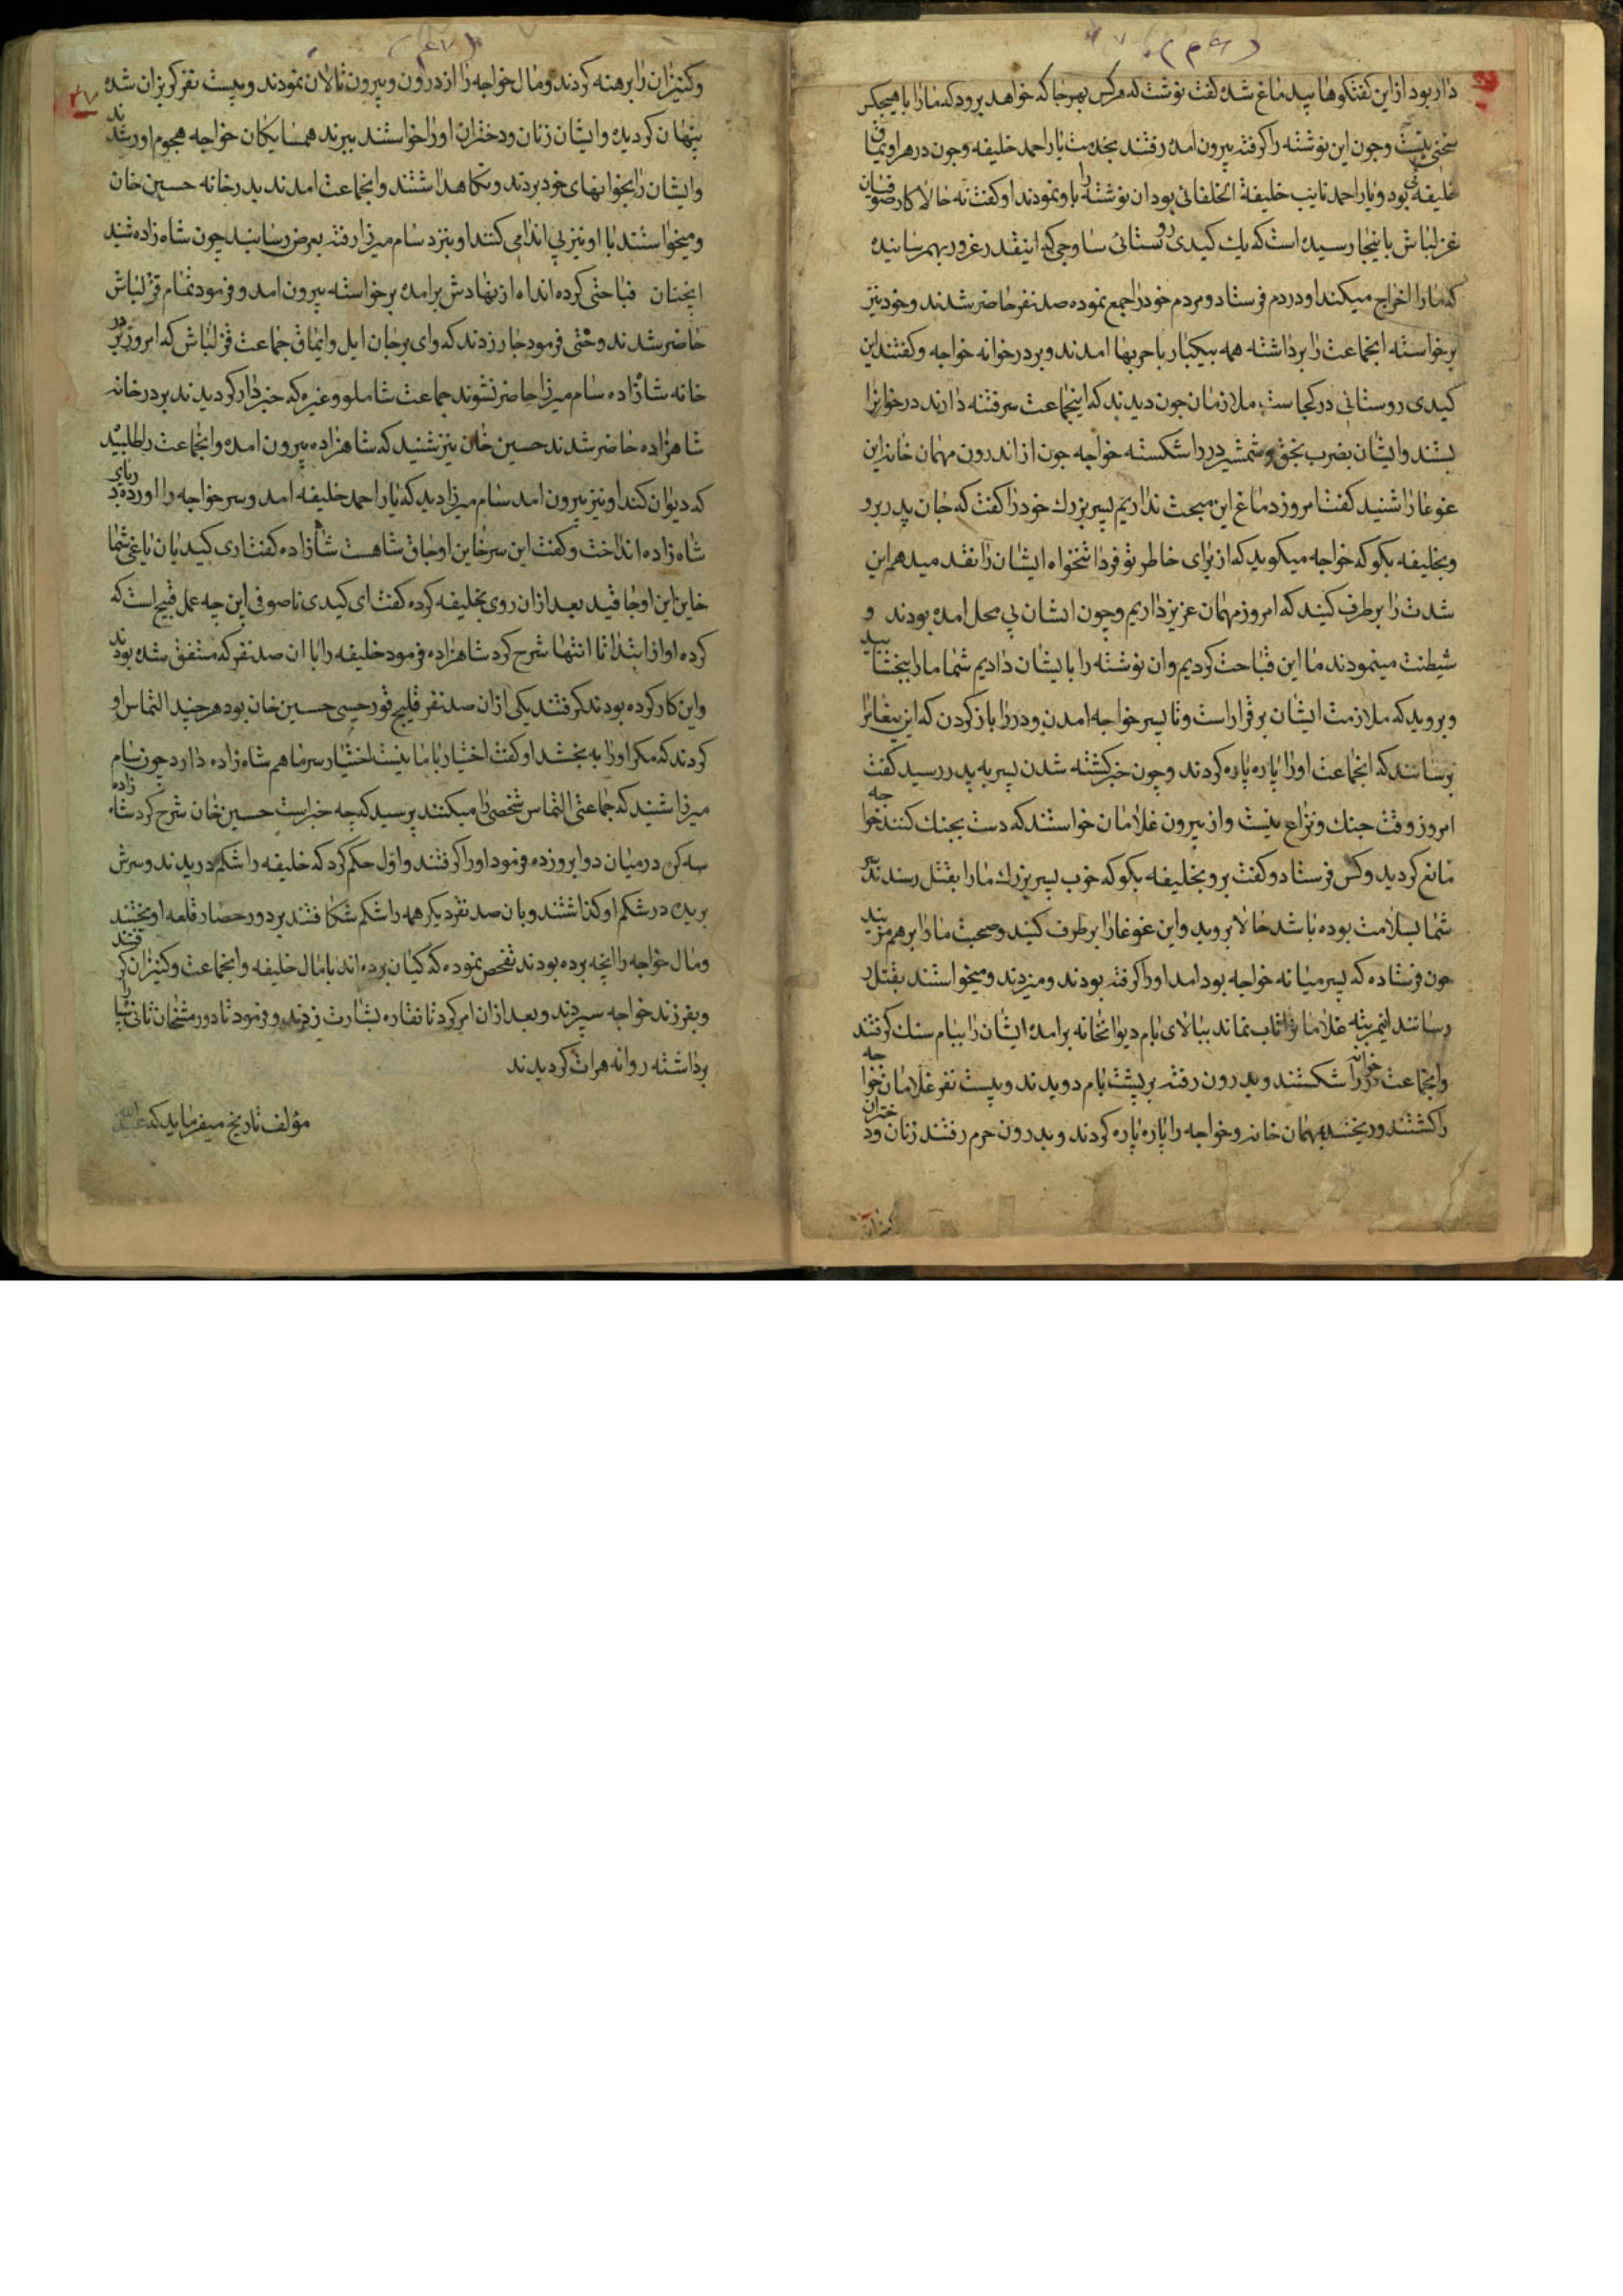 (۴۶)
دار بود از این کفتکوها بید ماغ شده کفت نوشت که هرکس بهرجا که خواهد برود که مارا با هیچکس
سخنی نیست وچون این نوشته را کرفته بیرون امده رفتند بخدمت یار احمد خلیفه وچون در هر اویماق
خلیفه بود ویار احمد نایب خلیفة الخلفائی بود ان نوشته را باو نمودند او کفت نه حالا کار صوفیان
غزلباش باینجا رسیده است که یك کیدی روستائی ساوجی که اینقدر غرور بهم رسانیده
که مارا اخراج میکند او در دم فرستاد ومردم خود را جمع نموده صد نفر حاضر شدند وخود نیز
برخواسته انجماعت را برداشته همه بیکبار با حربها امدند وبر در خوانه خواجه وکفتند این
کیدی روستائی در کجاست ملازمان چون دیدند که اینجماعت سر فتنه دارند در خوانرا
بستند وایشان بضرب بخق وشمشیر در را شکسته خواجه چون از اندرون مهمان خانه این
غوغا را شنید کفت امروز دماغ این مبحث نداریم پسر بزرك خود را کفت که جان پدر برو
وبخلیفه بکو که خواجه میکوید که از برای خاطر تو فردا تنخواه ایشان را نقد میدهم این
شدت را برطرف کنید که امروز مهمان عزیز داریم وچون ایشان بی محل امده بودند و
شیطنت مینمودند ما این قباحت کردیم وان نوشته را بایشان دادیم شما مارا ببخشایید
وبروید که ملازمت ایشان برقرار است وتا پسر خواجه امدن ودر را باز کردن که این پیغامرا
برسانند که انجماعت اورا پاره پاره کردند وچون خبر کشته شدن پسر به پدر رسید کفت
امروز وقت جنك ونزاع نیست واز بیرون غلامان خواستند که دست بجنك کنند خواجه
مانع کردید وکس فرستاد وکفت برو بخلیفه بکو که خوب پسر بزرك مارا بقتل رسندند سر
شما بسلامت بوده باشد حالا بروید واین غوغارا برطرف کنید وصحبت مارا برهم مزنید
چون فرستاده که پسر میانه خواجه بود امد اورا کرفته بودند ومیزدند ومیخواستند بقتل
رسانند اینمرتبه غلامانرا تاب نماند ببالای بام دیوانخانه برامده ایشان را ببام سنك کرفتند
وانجماعت در خوانه را شکستند وبدرون رفته بر پشت بام دویدند وبیست نفر غلامان خواجه
را کشتند وریختند بمهمان خانه وخواجه را پاره پاره کردند وبدرون حرم رفتند زنان ودختران
(۴۷)
۳۷
وکنیزان را برهنه کردند ومال خواجه را از درون وبیرون تالان نمودند وبیست نفر کریزان شده
پنهان کردیدند وایشان زنان ودختران اورا خواستند ببرند همسایکان خواجه هجوم اور شدند
وایشان را بخوانهای خود بردند ونکاهداشتند وانجماعت امدند بدر خانه حسین خان
ومیخواستند با او نیز بی اندامی کنند او بنزد سام میرزا رفته بعرض رسانید چون شاه زاده شنید
اینچنان قباحتی کرده اند اه از نهادش برامده برخواسته بیرون امد وفرمود تمام قزلباش
حاضر شدند وحتی فرمود جار زدند که وای بر جان ایل وایماق جماعت قزلباش که امروز بر در
خانه شازاده سام میرزا حاضر نشوند جماعت شاملو وغیره که خبردار کردیدند بر در خانه
شاهزاده حاضر شدند حسین خان نیز شنید که شاهزاده بیرون امده وانجماعت را طلبیده
که دیوان کند او نیز بیرون امد سام میرزا دید که یار احمد خلیفه امد وسر خواجه را اورده در پای
شاه زاده انداخت وکفت این سر خاین اوجاق شاهست شازاده کفت اری کیدیان یاغی شما
خاین این اوجاقید بعد از ان روی بخلیفه کرده کفت ای کیدی ناصوفی این چه عمل قبیح است که
کرده او از ابتدا تا انتها شرح کرد شاهزاده فرمود خلیفه را با ان صد نفر که متفق شده بودند
واین کار کرده بودند کرفتند یکی از ان صد نفر قلیج قورچیی حسین خان بود هرچند التماس او
کردند که مکر اورا به بخشد او کفت اختیار با ما نیست اختیار سر ما هم شاه زاده دارد چون سام
میرزا شنید که جماعتی التماس شخصی را میکنند پرسید که چه خبر است حسین خان شرح کرد شاه زاده
سه کن در میان دو ابرو زده فرمود اورا کرفتند واول حکم کرد که خلیفه را شکم دریدند وسرش
بریده در شکم او کذاشتند وبان صد نفر دیکر همه را شکم شکافتند بر دور حصار قلعه اویختند
ومال خواجه را انچه برده بودند تفحص نموده که کیان برده اند با مال خلیفه وانجماعت وکنیزان کرفتند
وبفرزند خواجه سپردند وبعد از ان امر کرد تا نقاره بشارت زدند وفرمود تا دورمشخان ثانی را
برداشته روانه هرات کردیدند
مؤلف تاریخ میفرماید که